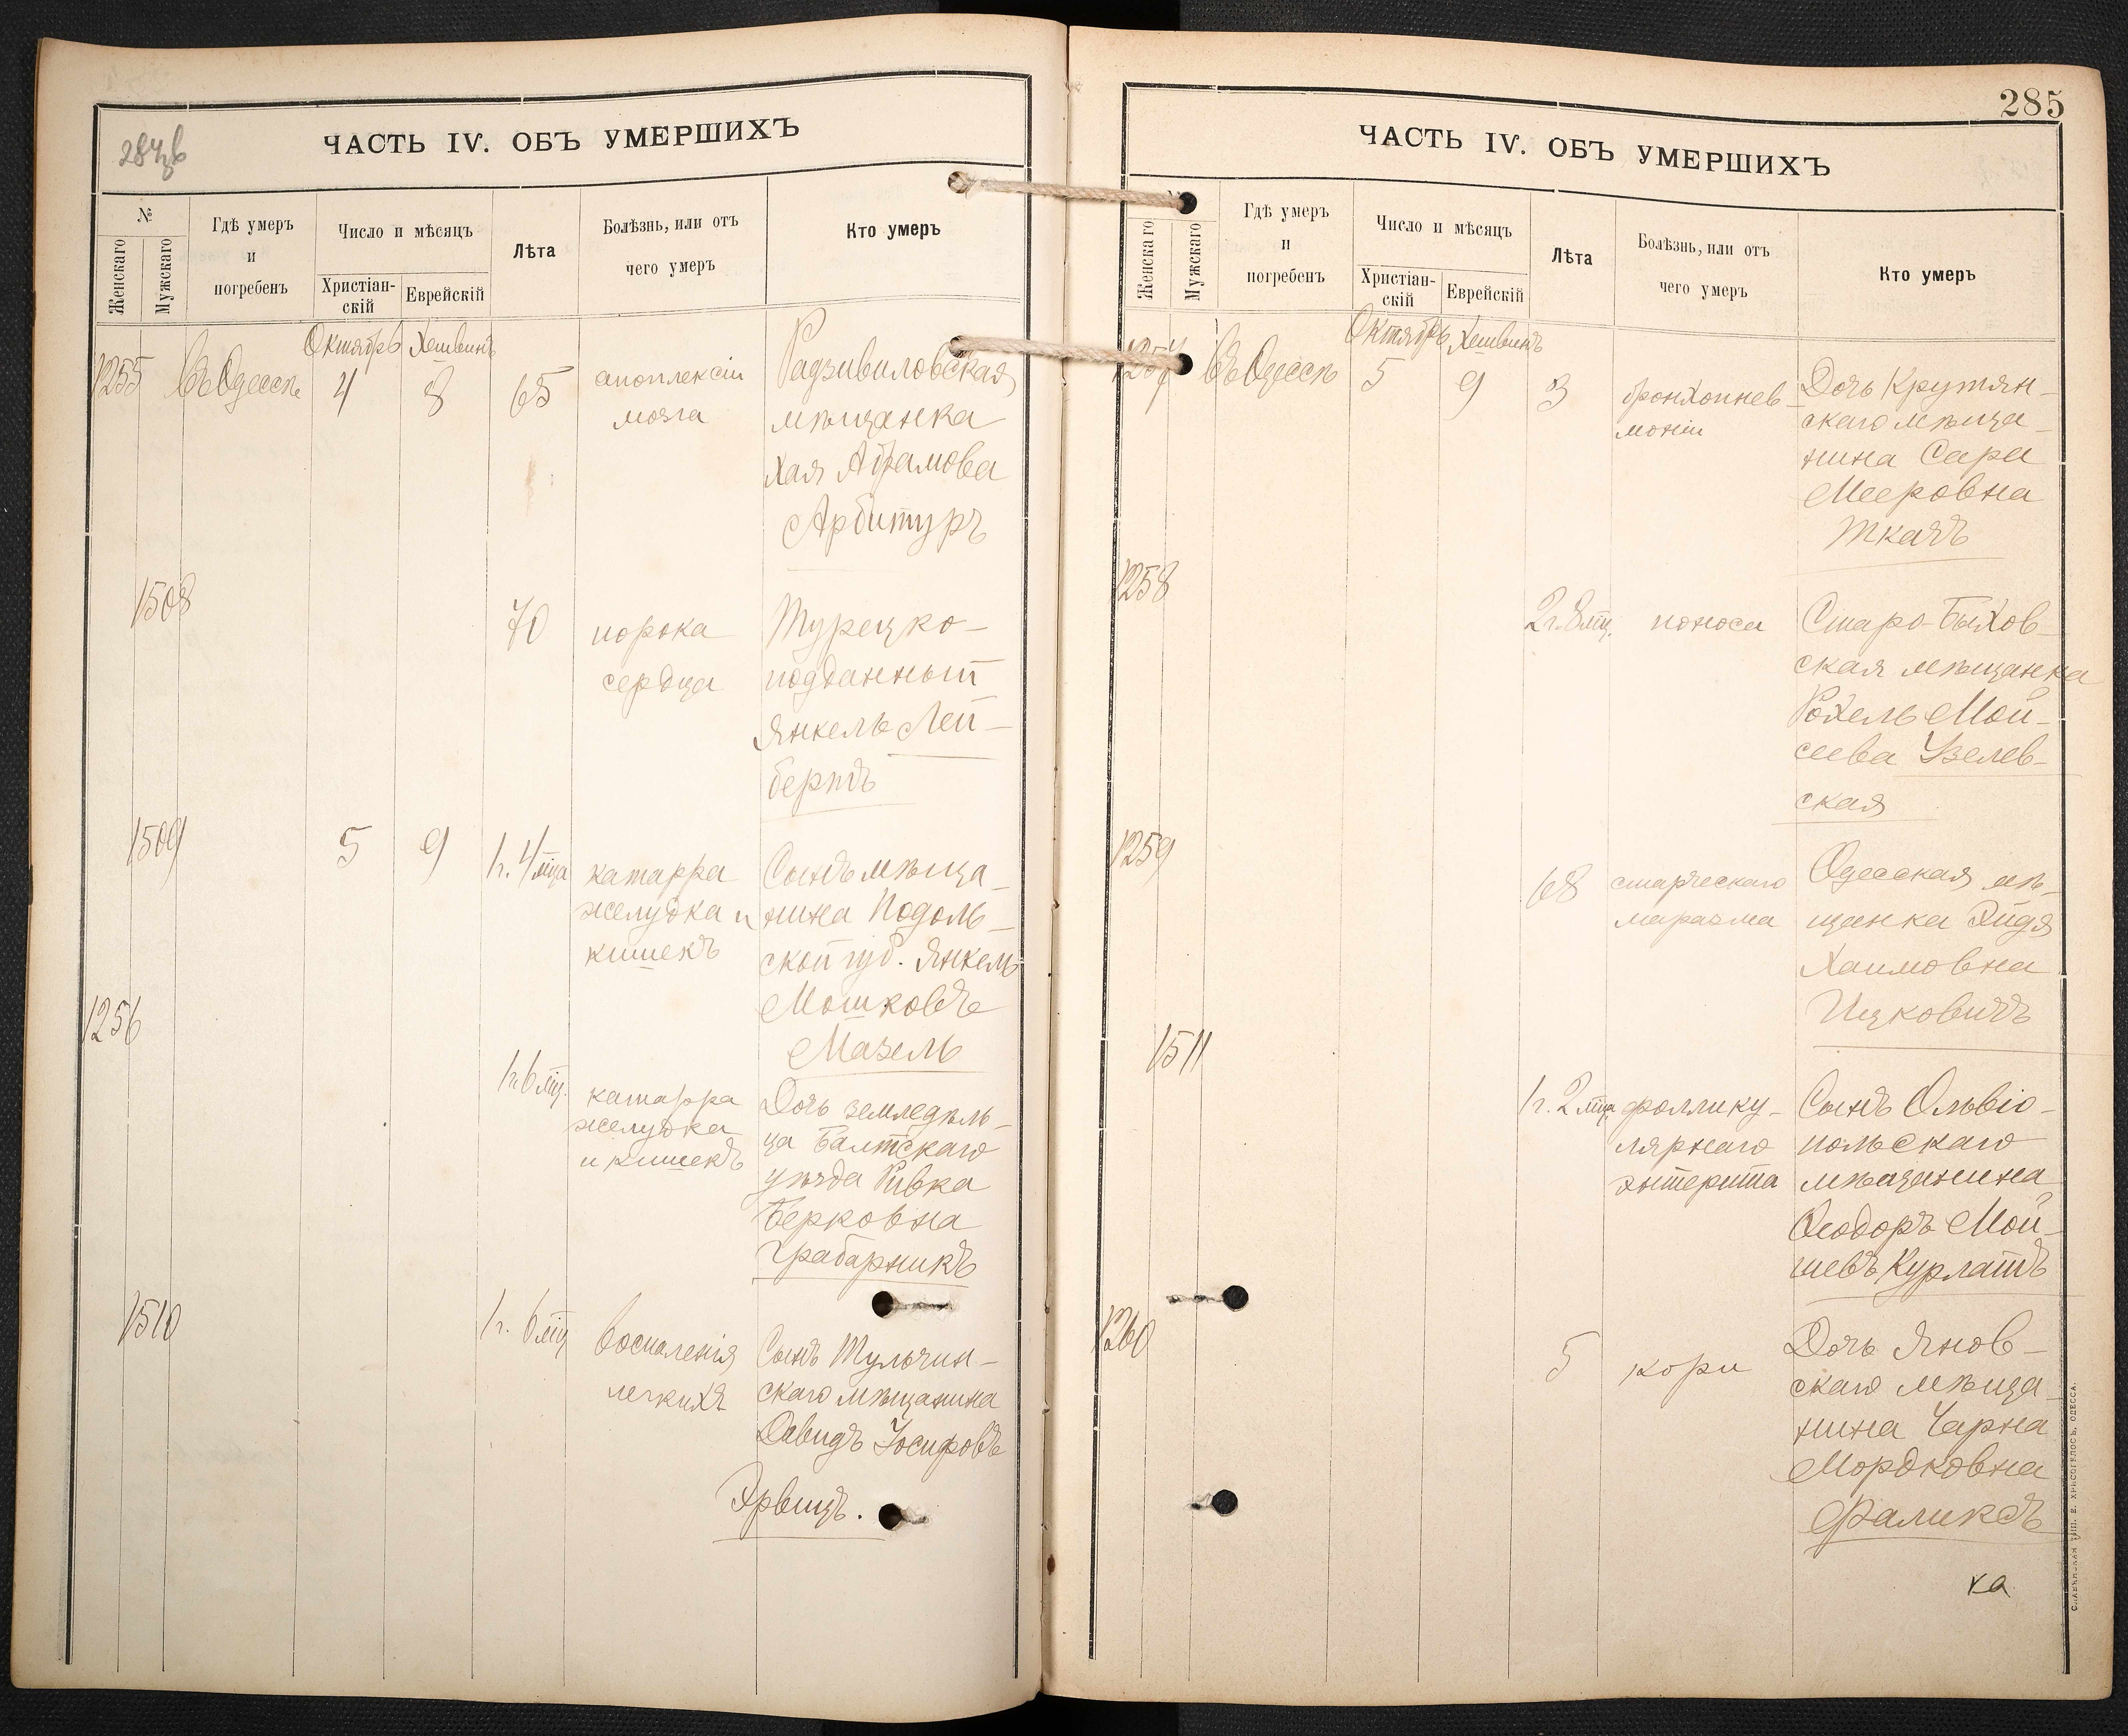 284 зв
ЧАСТЬ IV. ОБЪ УМЕРШИХЪ
№
Женскаго
Мужскаго
Гдѣ умеръ
и
погребенъ
Число и мѣсяцъ
Христіан-
скій
Еврейскій
Лѣта
Болѣзнь, или отъ
чего умеръ
Кто умеръ
Октябрь Хешвинъ
1255 Въ Одессѣ 4 8 65
апоплексіи
мозга
Радзивиловская
мѣщанка
Хая Абрамова
Арбитуръ
1508
70
порока
сердца
Турецко-
подданный
Янкель Лей-
бертъ
1509
5 9 1 г. 4 мца
катарра
желудка и
кишекъ
Сынъ мѣща-
нина Подоль-
ской губ. Янкель
Мошковъ
Мазель
1256
1 г. 6 мц.
катарра
желудка
и кишекъ
Дочь земледѣль-
ца Балтскаго
уѣзда Ривка
Берковна
Грабарникъ
1510
1 г. 6 мц
воспаленія
легкихъ
Сынъ Тульчин-
скаго мѣщанина
Давидъ Іосифовъ
Эрвицъ.
285
ЧАСТЬ IV. ОБЪ УМЕРШИХЪ
Женскаго
Мужскаго
Гдѣ умеръ
и
погребенъ
Число и мѣсяцъ
Христіан-
скій
Еврейскій
Лѣта
Болѣзнь, или отъ
чего умеръ
Кто умеръ
Октябрь Хешвинъ
1257 Въ Одессѣ 5 9 3
бронхопнев-
моніи
Дочь Крутян-
скаго мѣща-
нина Сара
Мееровна
Ткачъ
1258
2 г. 8 мц.
поноса
Старо-Быхов-
ская мѣщанка
Рохель Мой-
сеева Узелев-
ская
1259
68
старческаго
маразма
Одесская мѣ-
щанка Эйдя
Хаимовна
Ицковичъ
1511
1 г. 2 мца
фоллику-
лярнаго
энтерита
Сынъ Ольвіо-
польскаго
мѣщанина
Ѳеодоръ Мой-
шевъ Курлатъ
1260
5
кори
Дочь Янов-
скаго мѣща-
нина Чарна
Мордковна
Фаликъ
ка
СЛАВЯНСКАЯ ТИП. Е. ХРИСОГЕЛОСЪ, ОДЕССА.